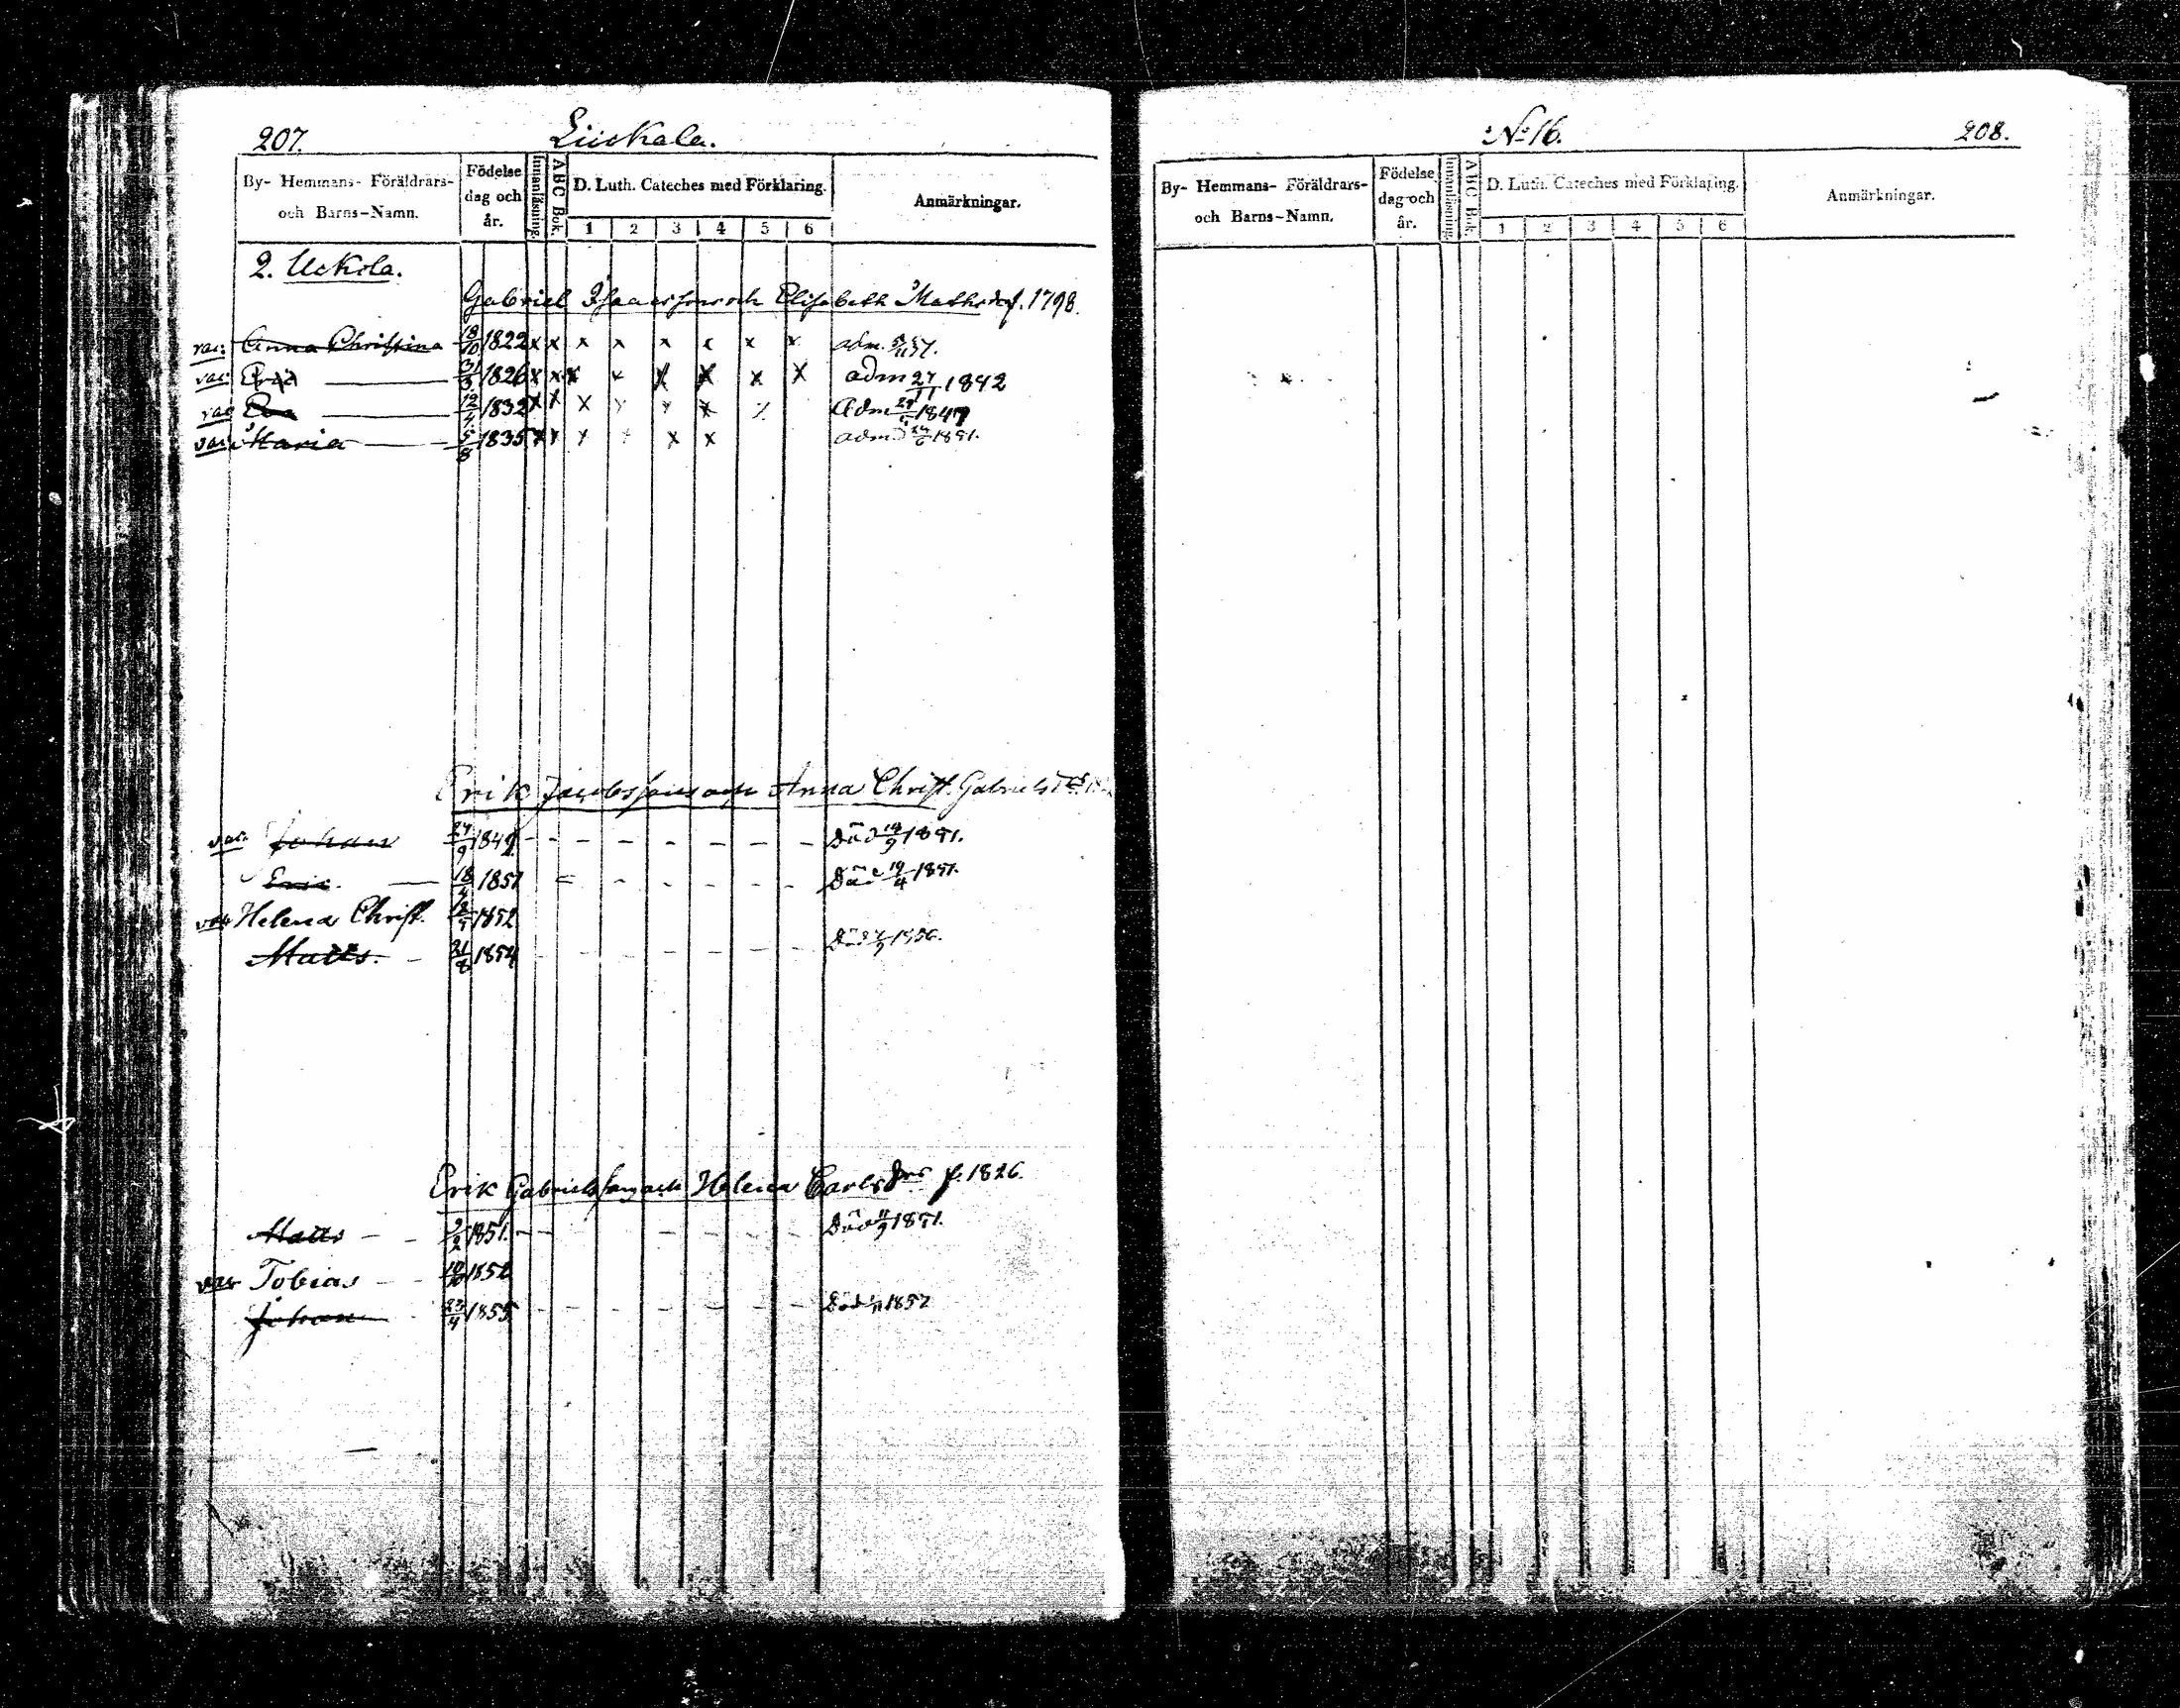 207. Liiskala.
By- Hemmans- Föräldrars- och Barns-Namn. Födelse dag och år. Innanläsning. ABC Bok. D. Luth. Cateches med Förklaring. Anmärkningar.
1 2 3 4 5 6
2. Uckola.
Gabriel Isaacsson och Elisabeth Mathsd. f. 1798.
vac: Anna Christina 18/10 1822 x x x x x x x x adm. 37.
vac: Eric 31/3 1826 x x x x x x x x adm 27/11 1842
vac Eva 12/4 1832 x x x x x x x Adm 1847
vac: Maria 5/8 1835 x x x x x x adm 24/6 1851.
Erik Jacobsson och Anna Christ. Gabrielsd.
vac. Johan 24/9 1849 Död 19/9 1851.
Eric. 18/4 1851 Död 19/4 1851.
vac Helena Christ. 1852
Matts. 31/8 1854 Död 1856.
Erik Gabrielsson och Helena Carlsdr f. 1826.
Matts 2/2 1851. Död 11/9 1851.
vac Tobias 1852
Johan 23/4 1855 Död 1857
No 16. 208.
By- Hemmans- Föräldrars- och Barns-Namn. Födelse dag och år. Innanläsning. ABC Bok. D. Luth. Cateches med Förklaring. Anmärkningar.
1 2 3 4 5 6